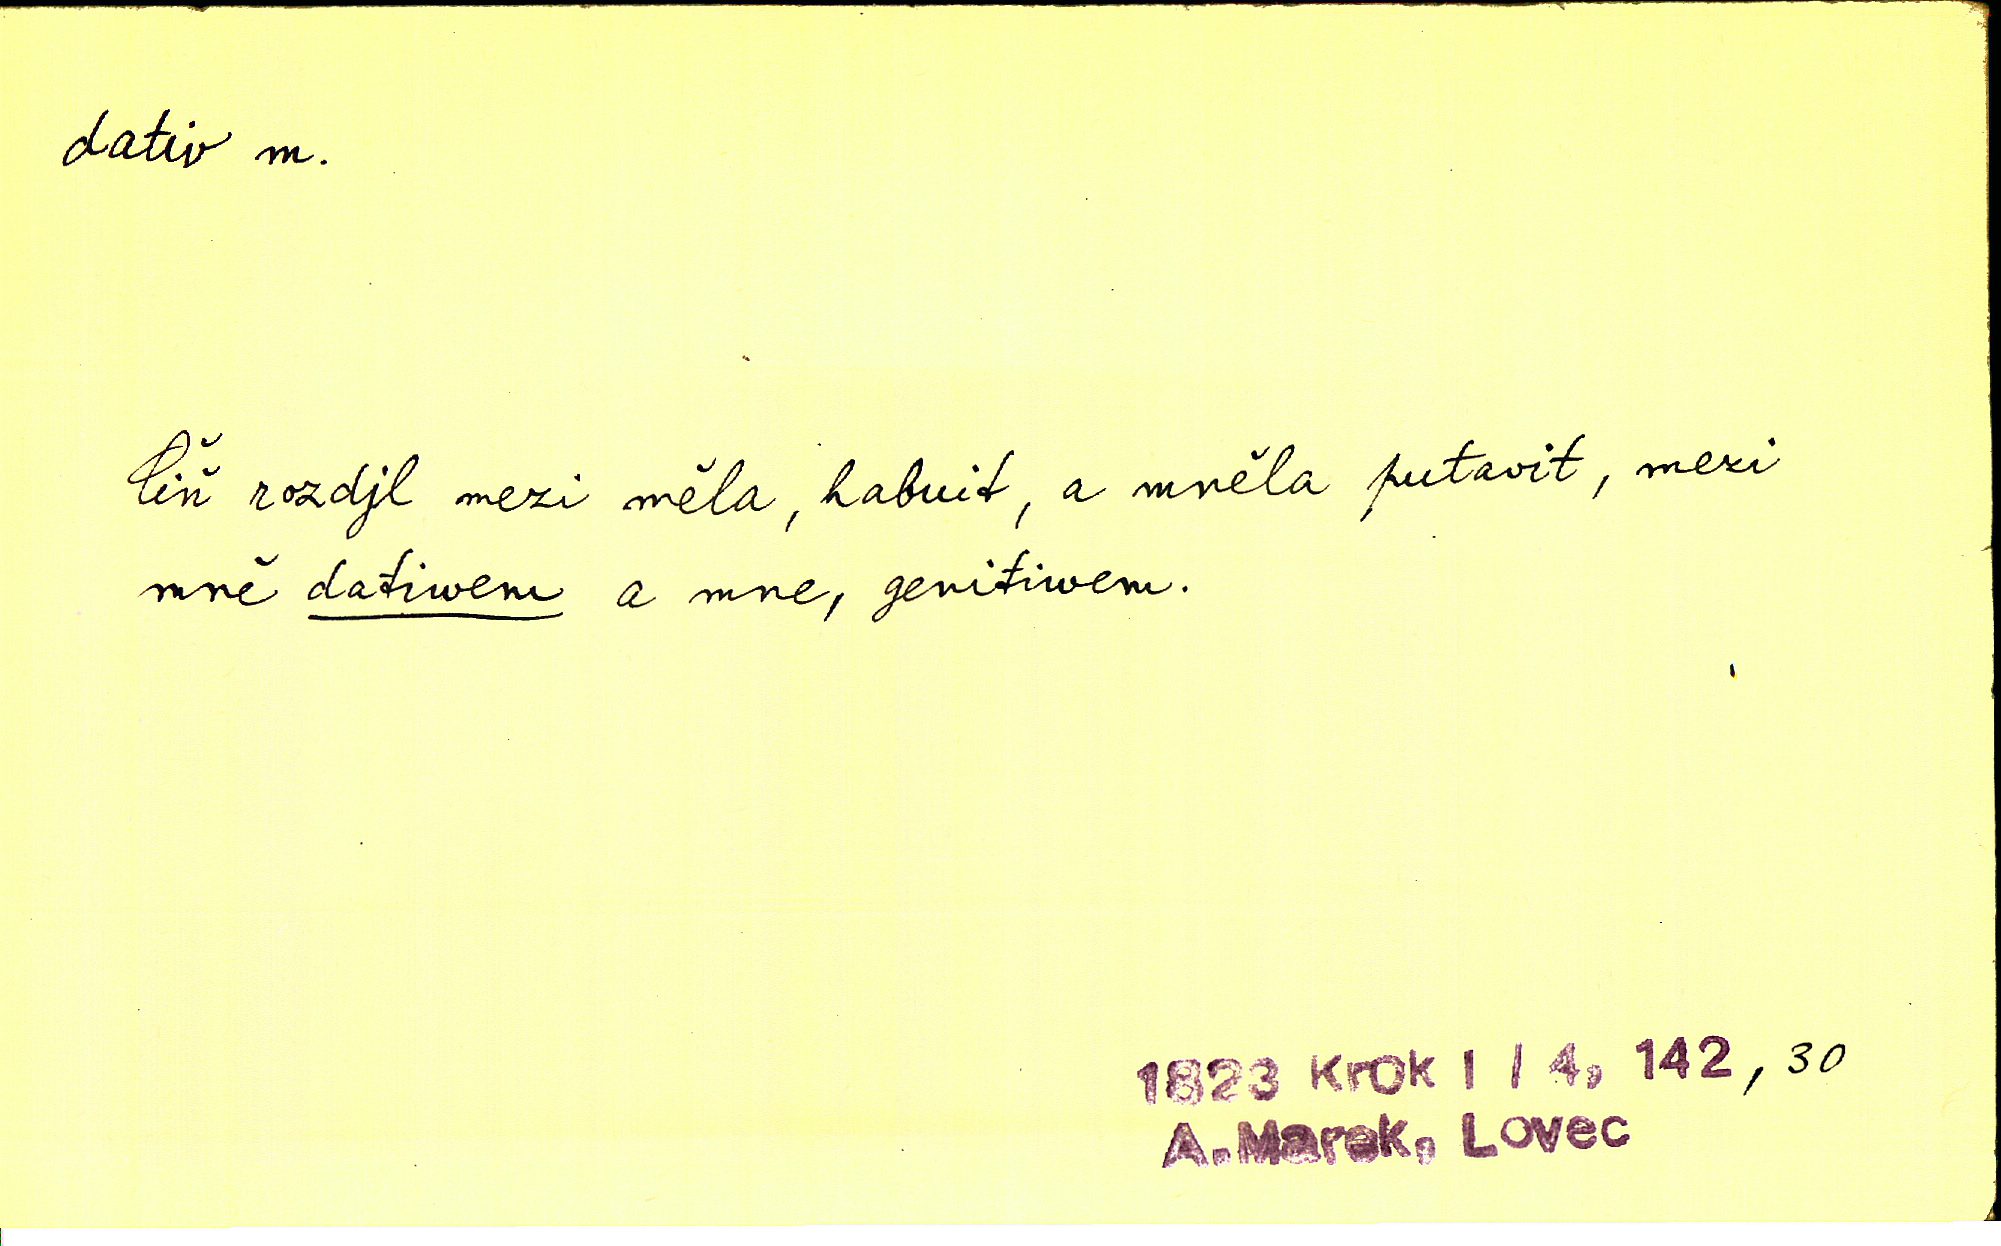 dativ m.
Čiň rozdjl mezi měla, habuit, a mněla putavit, mezi
mně dativem a mne, genitiwem.
1823 Krok I / 4, 142, 30
A. Marek, Lovec